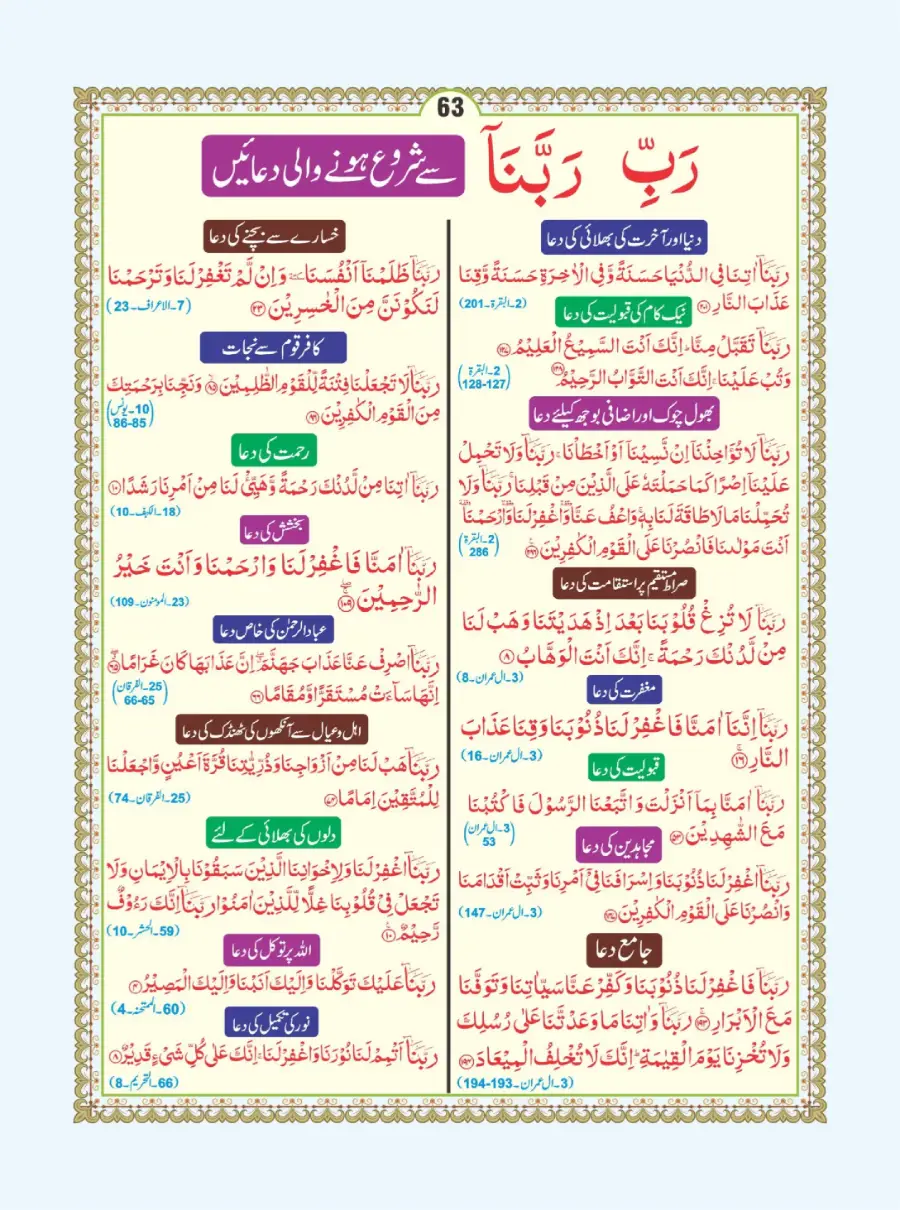 63
رَبِّ رَبَّنَآ سے شروع ہونے والی دعائیں
دنیا اور آخرت کی بھلائی کی دعا
رَبَّنَآ اٰتِنَا فِي الدُّنْيَا حَسَنَةً وَّفِي الْاٰخِرَةِ حَسَنَةً وَّقِنَا
عَذَابَ النَّارِ ۝۲۰۱ (2۔البقرة۔201)
نیک کام کی قبولیت کی دعا
رَبَّنَا تَقَبَّلْ مِنَّا ؕ اِنَّكَ اَنْتَ السَّمِيْعُ الْعَلِيْمُ ۝۱۲۷
وَتُبْ عَلَيْنَا ۚ اِنَّكَ اَنْتَ التَّوَّابُ الرَّحِيْمُ ۝۱۲۸ (2۔البقرة 128-127)
بھول چوک اور اضافی بوجھ کیلئے دعا
رَبَّنَا لَا تُؤَاخِذْنَآ اِنْ نَّسِيْنَآ اَوْ اَخْطَاْنَا ۚ رَبَّنَا وَلَا تَحْمِلْ
عَلَيْنَآ اِصْرًا كَمَا حَمَلْتَهٗ عَلَى الَّذِيْنَ مِنْ قَبْلِنَا ۚ رَبَّنَا وَلَا
تُحَمِّلْنَا مَا لَا طَاقَةَ لَنَا بِهٖ ۚ وَاعْفُ عَنَّا ۥ وَاغْفِرْ لَنَا ۥ وَارْحَمْنَا ۥ
اَنْتَ مَوْلٰىنَا فَانْصُرْنَا عَلَى الْقَوْمِ الْكٰفِرِيْنَ ۝۲۸۶ (2۔البقرة 286)
صراط مستقیم پر استقامت کی دعا
رَبَّنَا لَا تُزِغْ قُلُوْبَنَا بَعْدَ اِذْ هَدَيْتَنَا وَهَبْ لَنَا
مِنْ لَّدُنْكَ رَحْمَةً ۚ اِنَّكَ اَنْتَ الْوَهَّابُ ۝۸
(3۔ال عمران۔8)
مغفرت کی دعا
رَبَّنَآ اِنَّنَآ اٰمَنَّا فَاغْفِرْ لَنَا ذُنُوْبَنَا وَقِنَا عَذَابَ
النَّارِ ۝۱۶ (3۔ال عمران۔16)
قبولیت کی دعا
رَبَّنَآ اٰمَنَّا بِمَآ اَنْزَلْتَ وَاتَّبَعْنَا الرَّسُوْلَ فَاكْتُبْنَا
مَعَ الشّٰهِدِيْنَ ۝۵۳ (3۔ال عمران 53)
مجاہدین کی دعا
رَبَّنَا اغْفِرْ لَنَا ذُنُوْبَنَا وَاِسْرَافَنَا فِيْٓ اَمْرِنَا وَثَبِّتْ اَقْدَامَنَا
وَانْصُرْنَا عَلَى الْقَوْمِ الْكٰفِرِيْنَ ۝۱۴۷ (3۔ال عمران۔147)
جامع دعا
رَبَّنَا فَاغْفِرْ لَنَا ذُنُوْبَنَا وَكَفِّرْ عَنَّا سَيِّاٰتِنَا وَتَوَفَّنَا
مَعَ الْاَبْرَارِ ۝۱۹۳ رَبَّنَا وَاٰتِنَا مَا وَعَدْتَّنَا عَلٰى رُسُلِكَ
وَلَا تُخْزِنَا يَوْمَ الْقِيٰمَةِ ؕ اِنَّكَ لَا تُخْلِفُ الْمِيْعَادَ ۝۱۹۴
(3۔ال عمران۔193-194)
خسارے سے بچنے کی دعا
رَبَّنَا ظَلَمْنَآ اَنْفُسَنَا ٚ وَاِنْ لَّمْ تَغْفِرْ لَنَا وَتَرْحَمْنَا
لَنَكُوْنَنَّ مِنَ الْخٰسِرِيْنَ ۝۲۳ (7۔الاعراف۔23)
کافر قوم سے نجات
رَبَّنَا لَا تَجْعَلْنَا فِتْنَةً لِّلْقَوْمِ الظّٰلِمِيْنَ ۝۸۵ وَنَجِّنَا بِرَحْمَتِكَ
مِنَ الْقَوْمِ الْكٰفِرِيْنَ ۝۸۶ (10۔یونس 86-85)
رحمت کی دعا
رَبَّنَآ اٰتِنَا مِنْ لَّدُنْكَ رَحْمَةً وَّهَيِّئْ لَنَا مِنْ اَمْرِنَا رَشَدًا ۝۱۰
(18۔الکہف۔10)
بخشش کی دعا
رَبَّنَآ اٰمَنَّا فَاغْفِرْ لَنَا وَارْحَمْنَا وَاَنْتَ خَيْرُ
الرّٰحِمِيْنَ ۝۱۰۹ (23۔المؤمنون۔109)
عباد الرحمٰن کی خاص دعا
رَبَّنَا اصْرِفْ عَنَّا عَذَابَ جَهَنَّمَ ۖ اِنَّ عَذَابَهَا كَانَ غَرَامًا ۝۶۵
اِنَّهَا سَآءَتْ مُسْتَقَرًّا وَّمُقَامًا ۝۶۶ (25۔الفرقان 66-65)
اہل و عیال سے آنکھوں کی ٹھنڈک کی دعا
رَبَّنَا هَبْ لَنَا مِنْ اَزْوَاجِنَا وَذُرِّيّٰتِنَا قُرَّةَ اَعْيُنٍ وَّاجْعَلْنَا
لِلْمُتَّقِيْنَ اِمَامًا ۝۷۴ (25۔الفرقان۔74)
دلوں کی بھلائی کے لئے
رَبَّنَا اغْفِرْ لَنَا وَلِاِخْوَانِنَا الَّذِيْنَ سَبَقُوْنَا بِالْاِيْمَانِ وَلَا
تَجْعَلْ فِيْ قُلُوْبِنَا غِلًّا لِّلَّذِيْنَ اٰمَنُوْا رَبَّنَآ اِنَّكَ رَءُوْفٌ
رَّحِيْمٌ ۝۱۰ (59۔الحشر۔10)
اللہ پر توکل کی دعا
رَبَّنَا عَلَيْكَ تَوَكَّلْنَا وَاِلَيْكَ اَنَبْنَا وَاِلَيْكَ الْمَصِيْرُ ۝۴
(60۔الممتحنہ۔4)
نور کی تکمیل کی دعا
رَبَّنَآ اَتْمِمْ لَنَا نُوْرَنَا وَاغْفِرْ لَنَا ۚ اِنَّكَ عَلٰى كُلِّ شَيْءٍ قَدِيْرٌ ۝۸
(66۔التحریم۔8)